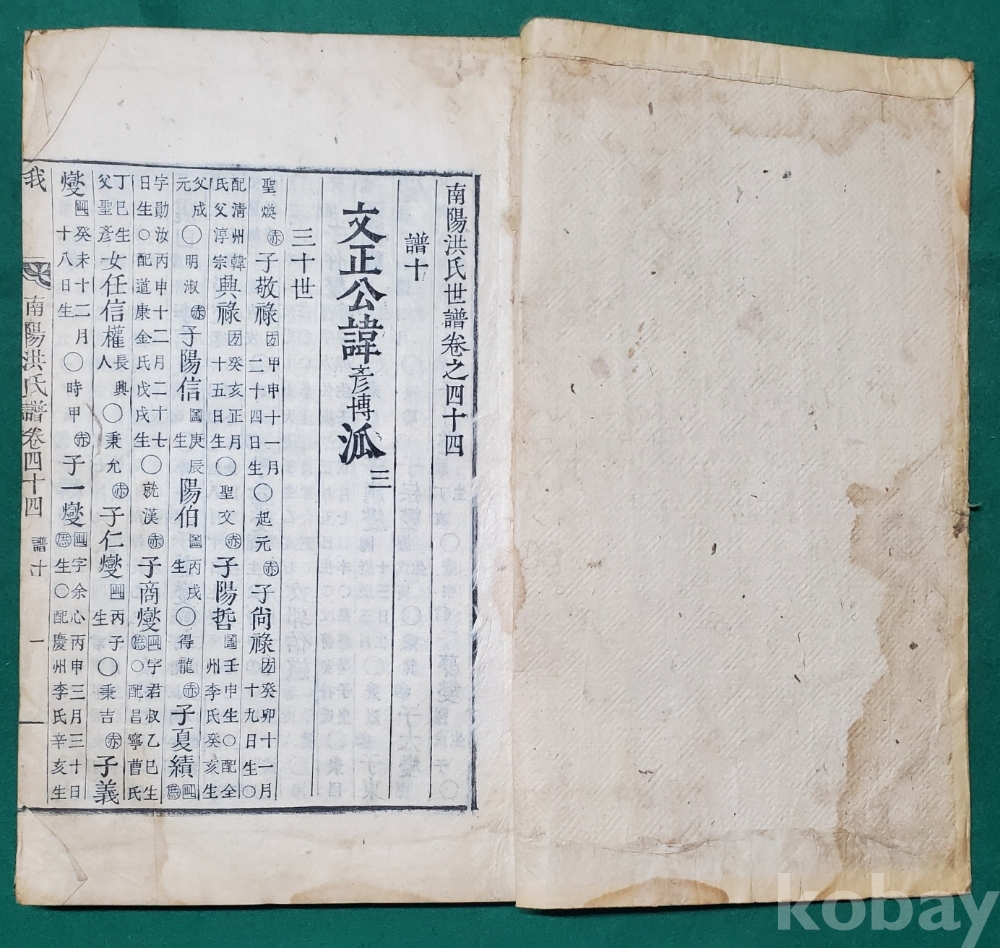 南陽洪氏世譜卷之四十四
譜十
文正公諱彥博泒三
三十世
聖煥赤子敬祿甲申十一月二十四日生○起元赤子尙祿癸卯十一月十九日生○
配清州韓氏父淳宗興祿癸亥正月十五日生○聖文赤子陽哲國壬申生○配全州李氏癸亥生
父成元○明淑赤子陽信國庚辰生陽伯國丙戌生○得龍赤子夏績
字勛汝丙申十二月二十七日生○配道康金氏戊戌生○就漢赤子商燮字君叔乙巳生○配昌寧曹氏
丁巳生父聖彥女任信權長興人○秉允赤子仁燮丙子生○秉吉赤子義
燮癸未十二月十八日生○時甲赤子一燮字余心丙申三月三十日生○配慶州李氏辛亥生
我
南陽洪氏譜卷四十四
譜十
一
kobay